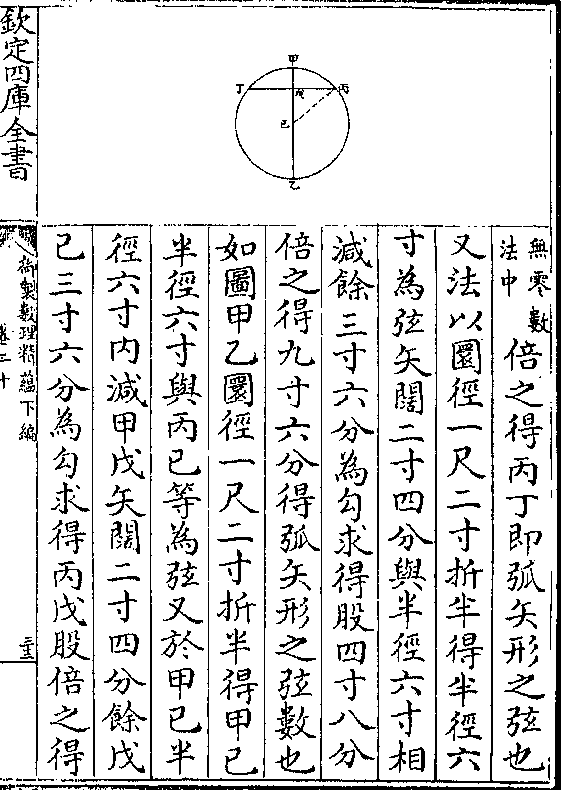 無零數
法中
倍之得丙丁即弧矢形之弦也
又法以圜徑一尺二寸折半得半徑六
寸為弦矢闊二寸四分與半徑六寸相
減餘三寸六分為勾求得股四寸八分
倍之得九寸六分得弧矢形之弦數也
如圖甲乙圜徑一尺二寸折半得甲己
半徑六寸與丙己等為弦又於甲己半
徑六寸内減甲戊矢闊二寸四分餘戊
己三寸六分為勾求得丙戊股倍之得
甲
丁
戊
丙
己
乙
欽定四庫全書
御製數理精蘊下編
卷二十